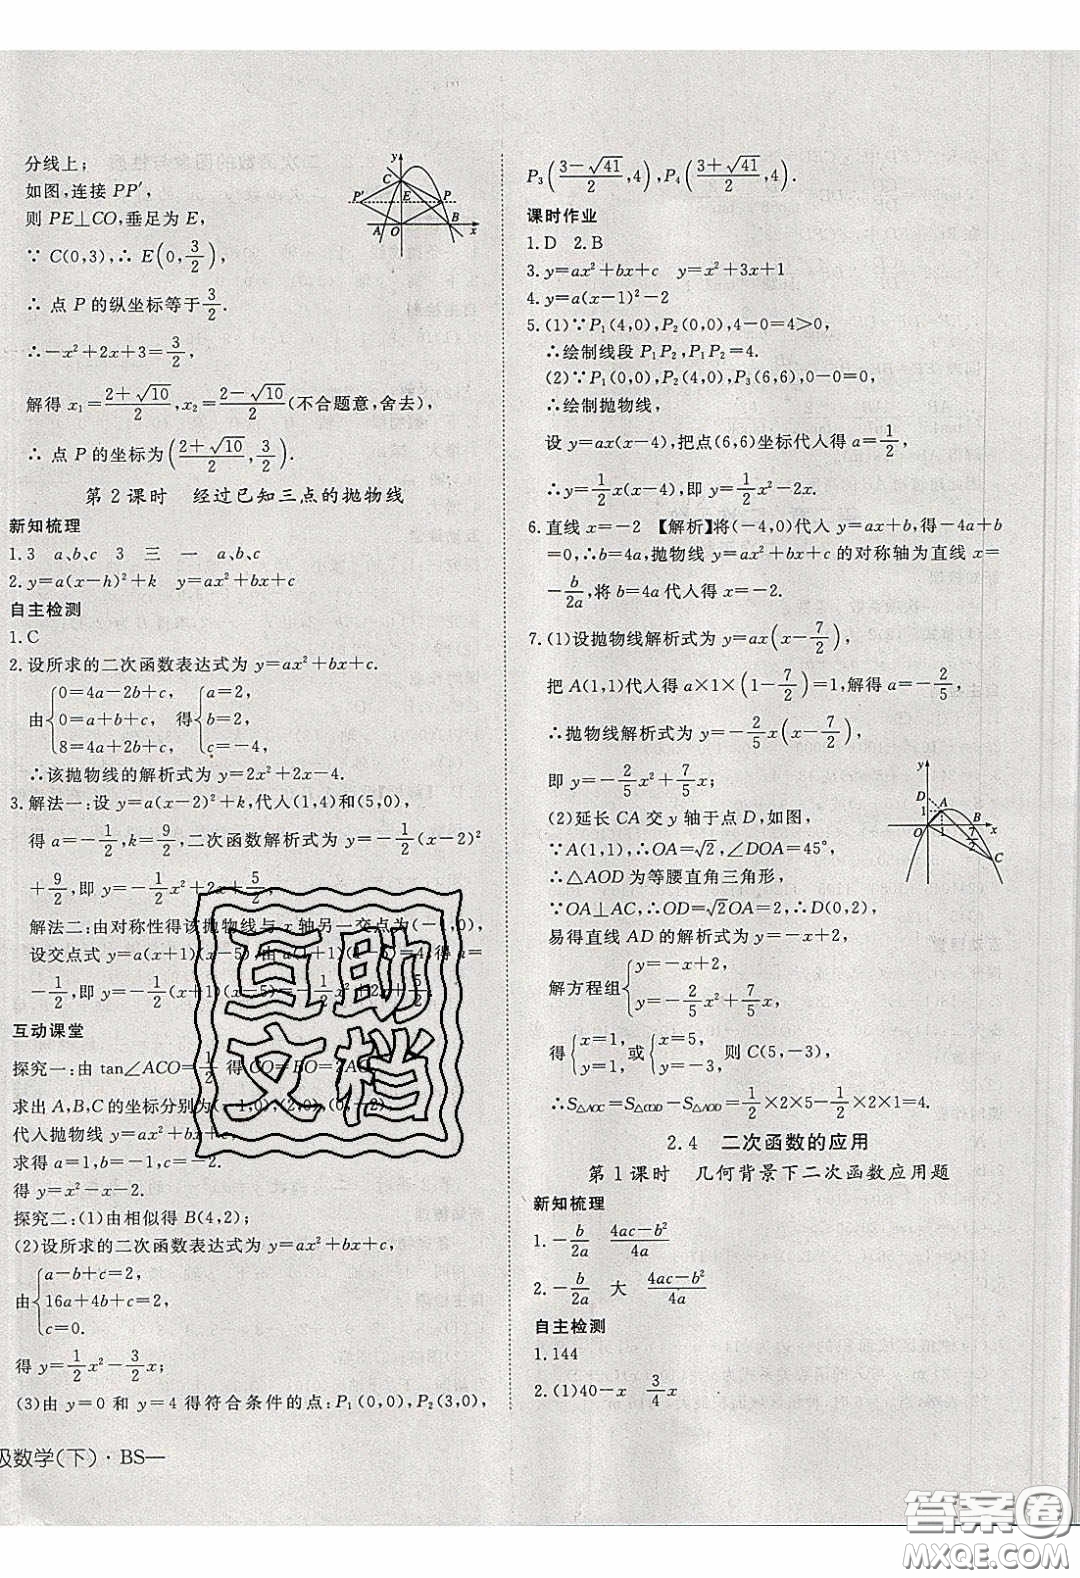 分线上；
如图,连接 PP′,
则 PE⊥CO,垂足为 E,
∵ C(0,3),∴ E(0,3/2),
∴ 点 P 的纵坐标等于3/2.
∴－x²＋2x＋3＝3/2,
解得 x₁＝(2＋√10)/2,x₂＝(2－√10)/2(不合题意,舍去),
∴ 点 P 的坐标为((2＋√10)/2,3/2).
y
C
P′ E P
A O B x
第 2 课时　经过已知三点的抛物线
新知梳理
1.3　a、b、c　3　三　一　a、b、c
2.y＝a(x－h)²＋k　y＝ax²＋bx＋c
自主检测
1.C
2.设所求的二次函数表达式为 y＝ax²＋bx＋c.
由{0＝4a－2b＋c,　得{a＝2,
0＝a＋b＋c,　b＝2,
8＝4a＋2b＋c,　c＝－4,
∴该抛物线的解析式为 y＝2x²＋2x－4.
3.解法一:设 y＝a(x－2)²＋k,代人(1,4)和(5,0),
得 a＝－1/2,k＝9/2,二次函数解析式为 y＝－1/2(x－2)²
＋9/2,即 y＝－1/2x²＋2x＋5/2.
解法二:由对称性得该抛物线与 x 轴另一交点为(－1,0),
设交点式 y＝a(x＋1)(x－5),由 a(1＋1)(1－5)＝4得 a＝
－1/2,即 y＝－1/2(x＋1)(x－5)＝－1/2x²＋2x＋5/2.
互动课堂
探究一:由 tan∠ACO＝1/2 得 CO＝BO＝2AO
求出 A,B,C 的坐标分别为(－1,0),(2,0),(0,－2)
代人抛物线 y＝ax²＋bx＋c,
求得 a＝1,b＝－1,c＝－2.
得 y＝x²－x－2.
探究二:(1)由相似得 B(4,2);
(2)设所求的二次函数表达式为 y＝ax²＋bx＋c,
由{a－b＋c＝2,
16a＋4b＋c＝2,
c＝0.
得 y＝1/2x²－3/2x;
(3)由 y＝0 和 y＝4 得符合条件的点:P₁(0,0),P₂(3,0),
级数学(下)·BS—
P₃((3－√41)/2,4),P₄((3＋√41)/2,4).
课时作业
1.D　2.B
3.y＝ax²＋bx＋c　y＝x²＋3x＋1
4.y＝a(x－1)²－2
5.(1)∵P₁(4,0),P₂(0,0),4－0＝4＞0,
∴绘制线段 P₁P₂,P₁P₂＝4.
(2)∵P₁(0,0),P₂(4,0),P₃(6,6),0－0＝0,
∴绘制抛物线,
设 y＝ax(x－4),把点(6,6)坐标代人得 a＝1/2,
∴y＝1/2x(x－4),即 y＝1/2x²－2x.
6.直线 x＝－2　【解析】将(－4,0)代人 y＝ax＋b,得－4a＋b
＝0,∴b＝4a,抛物线 y＝ax²＋bx＋c 的对称轴为直线 x＝
－b/2a,把 b＝4a 代人得 x＝－2.
7.(1)设抛物线解析式为 y＝ax(x－7/2),
把 A(1,1)代人得 a×1×(1－7/2)＝1,解得 a＝－2/5,
∴抛物线解析式为 y＝－2/5x(x－7/2),
即 y＝－2/5x²＋7/5x;
(2)延长 CA 交 y 轴于点 D,如图,
∵A(1,1),∴OA＝√2,∠DOA＝45°,
∴△AOD 为等腰直角三角形,
∵OA⊥AC,∴OD＝√2OA＝2,∴D(0,2),
易得直线 AD 的解析式为 y＝－x＋2,
解方程组{y＝－x＋2,
y＝－2/5x²＋7/5x,
得{x＝1,或{x＝5,　则 C(5,－3),
y＝1　y＝－3,
∴S△AOC＝S△COD－S△AOD＝1/2×2×5－1/2×2×1＝4.
y
D A
1
O 1 B x
7/2
C
2.4　二次函数的应用
第 1 课时　几何背景下二次函数应用题
新知梳理
1.－b/2a　(4ac－b²)/4a
2.－b/2a　大　(4ac－b²)/4a
自主检测
1.144
2.(1)40－x　3/4x
互助
文档
答案卷
MXQE.COM